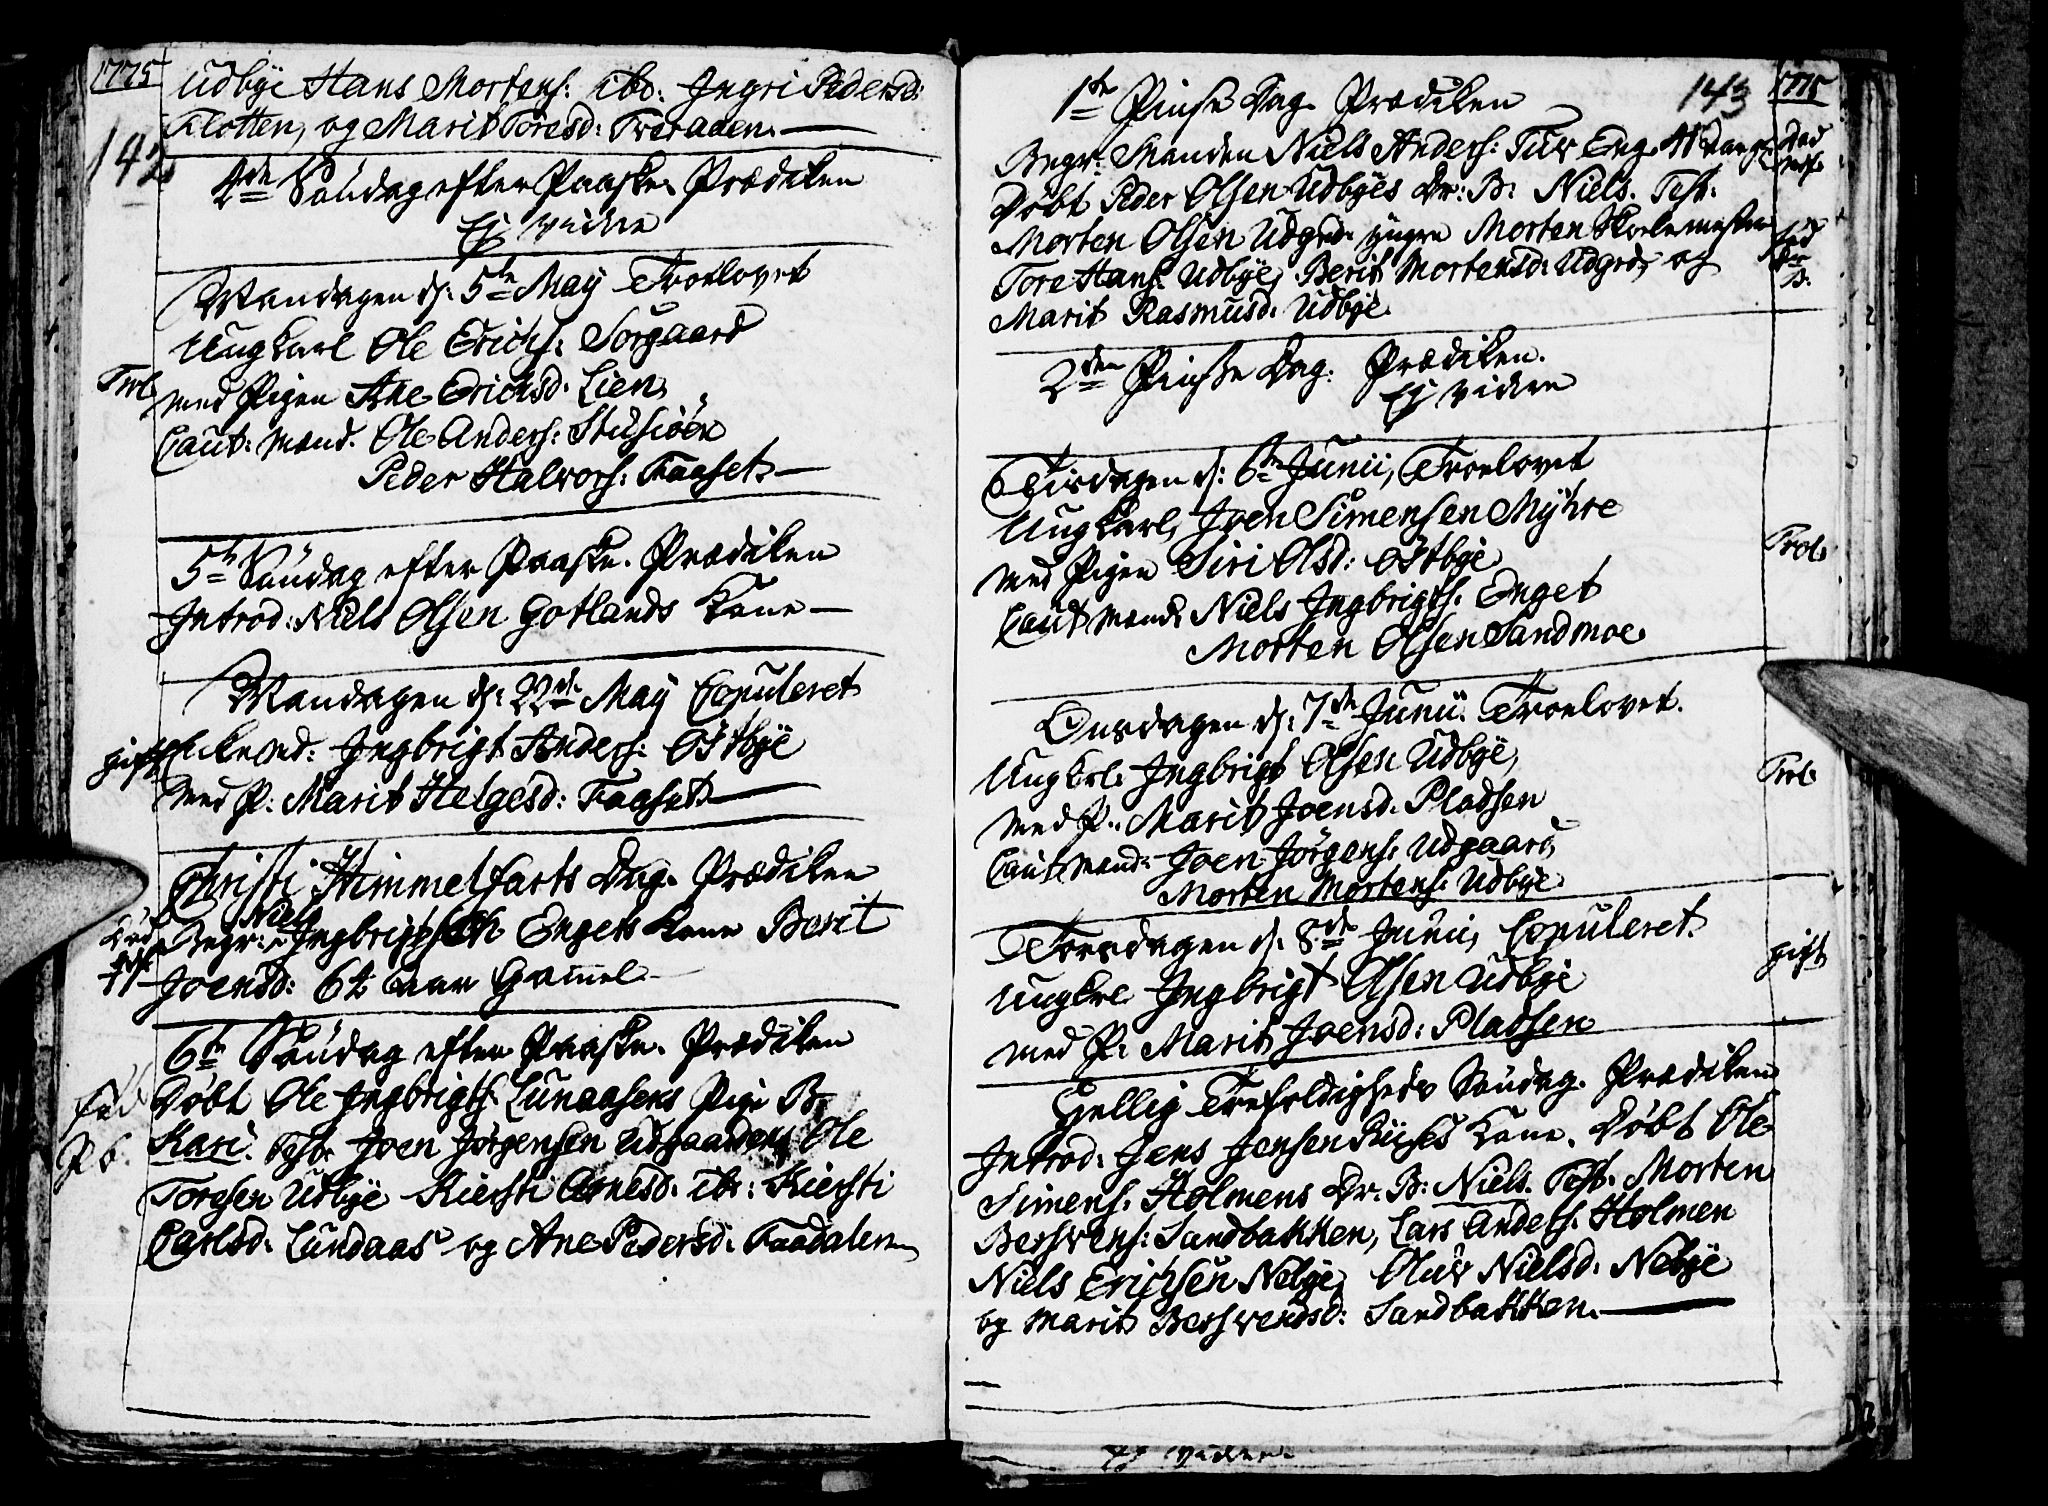 1775
142
Udbye Hans Mortens: ibd: Ingri Pedersd:
Flotten, og Marit Toresd: Tveraaen.
4de Søndag efter Paaske. Prædiken
Ej videre
Mandagen d: 5te Maij Troelovet
Ungkarl Ole Erichs: Sorgaard
Trol.
med Pigen Ane Erichsd: Lien,
Caut: Mænd. Ole Anders: Stusiöen
Peder Halvors: Faaset.
5te Søndag efter Paaske. Prædiken
Introd: Niels Olsen Gotlands Kone
Mandagen d: 22de Maij Copuleret
gift
Enkemd: Ingbrigt Anders: Östbye
med P: Marit Helgesd: Faaset
Christi Himmelfarts Dag. Prædiken
Niels
Begr: Ingbrigts Engets Kone Berit
Joensd: 64 aar Gammel
6te Søndag efter Paaske. Prædiken
Fød
Døbt Ole Ingbrigts: Lunaasens Pige B:
P b.
Kari. Test: Joen Jörgensen Udgaarden, Ole
Toresen Udbye Kiersti Arnesd: ibd: Kiersti
Carlsd: Lundaas og Ane Pedersd: Faadalen
143
1775
1ste Pinse Dag. Prædiken
Begr: Manden Niels Anders: Tuv Eng
Død
Døbt Peder Olsen Udbyes Dr: B: Niels. Test:
Morten Olsen Udgrd: yngre Morten Skolemester
Fød
Tore Hans: Udbye, Berit Mortensd: Udgrd, og
Dr
B.
Marit Rasmusd: Udbye
2den Pinsse Dag: Prædiken.
Ej videre
Tirsdagen d: 6te Junii, Troelovet
Ungkarl, Joen Simensen Mÿhre
Trol.
med Pigen Siri Olsd: Östbye
Caut Mænd: Niels Ingbrigts: Enget
Morten Olsen Sandmoe
Onsdagen d: 7de Junii. Troelovet.
Ungkrl: Ingbrigt Olsen Udbye,
Trol.
med P: Marit Joensd: Pladsen
Caut Mænd: Joen Jörgens: Udgaard,
Morten Mortens: Udbye
Torsdagen d: 8de Junii, Copuleret
gift
Ungkrl Ingbrigt Olsen Udbye
med P: Marit Joensd: Pladsen
Hellig Trefoldigheds Søndag. Prædiken
Introd: Jens Jensen Riises Kone. Døbt Ole
Simens: Holmens Dr: B: Niels. Test. Morten
Bersvens: Sandbakken, Lars Anders: Holmen
Niels Erichsen Nebye, Oluv Nielsd: Nebye
og Marit Bersvendsd: Sandbakken.
Ej videre